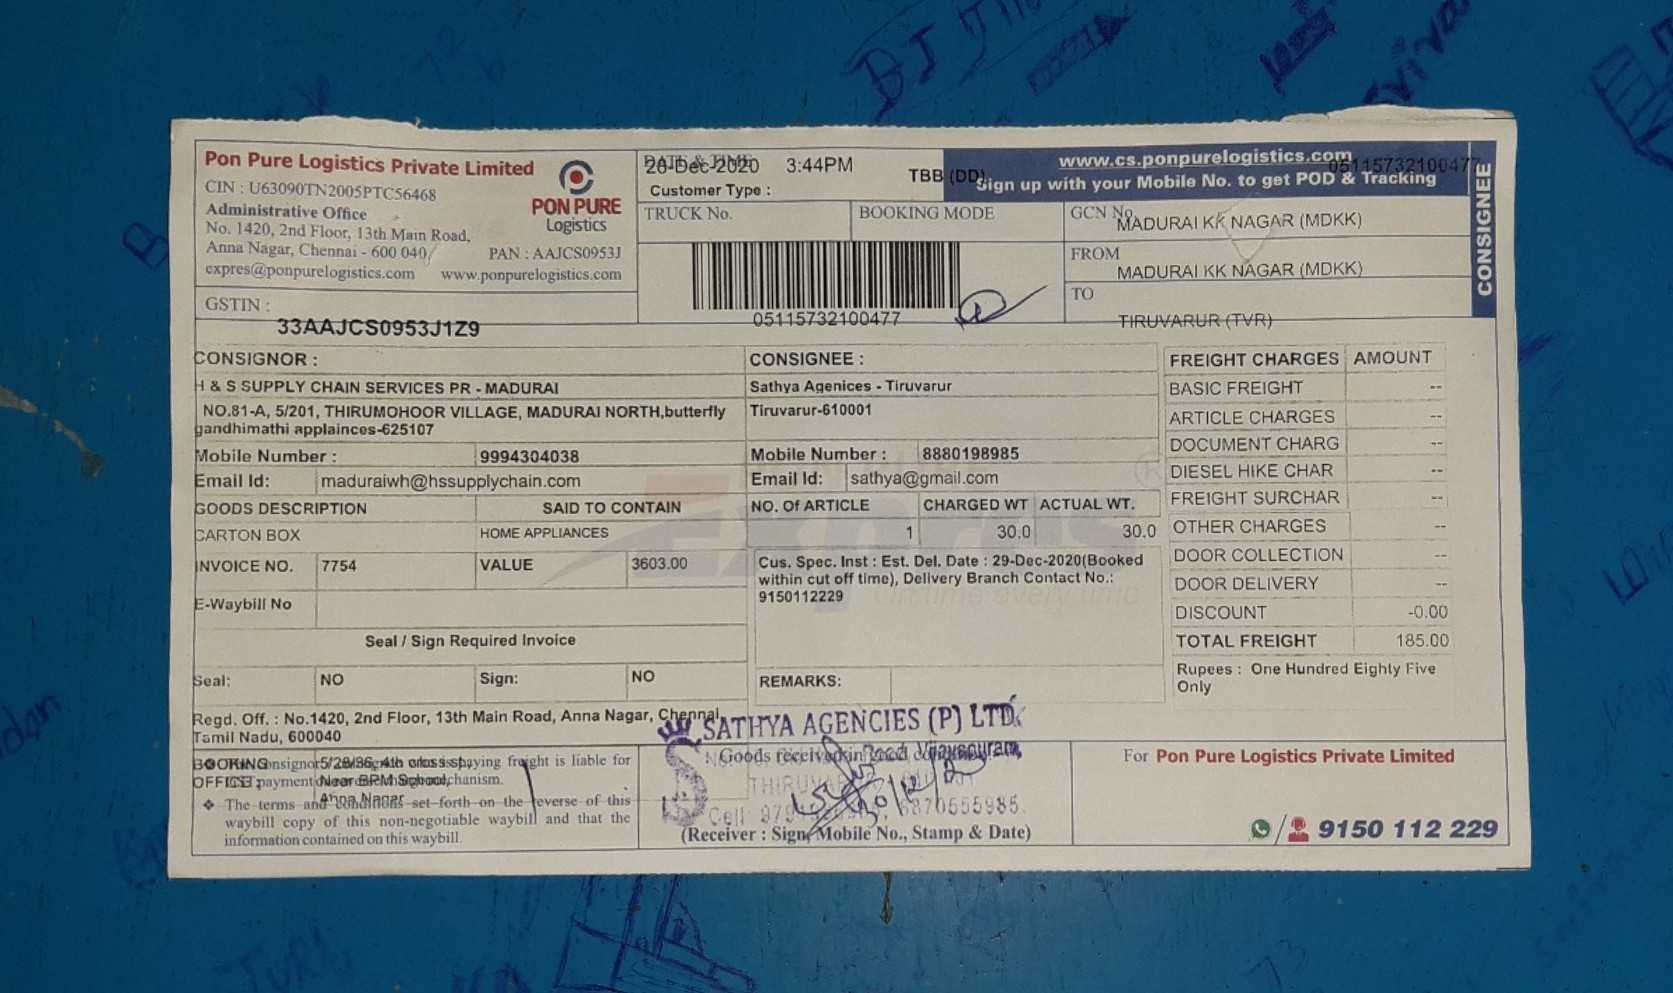 Pon Pure Logistics Private Limited
CIN : U63090TN2005PTC56468
Administrative Office
No. 1420, 2nd Floor, 13th Main Road,
Anna Nagar, Chennai - 600 040
PAN : AAJCS0953J
expres@ponpurelogistics.com www.ponpurelogistics.com
PON PURE
Logistics
GSTIN :
33AAJCS0953J1Z9
DATE & TIME
26-Dec-2020 3:44PM
TBB (DD)
Customer Type :
www.cs.ponpurelogistics.com
05115732100477
Sign up with your Mobile No. to get POD & Tracking
CONSIGNEE
TRUCK No.
BOOKING MODE
GCN No.
MADURAI KK NAGAR (MDKK)
FROM
MADURAI KK NAGAR (MDKK)
TO
TIRUVARUR (TVR)
05115732100477
CONSIGNOR :
H & S SUPPLY CHAIN SERVICES PR - MADURAI
NO.81-A, 5/201, THIRUMOHOOR VILLAGE, MADURAI NORTH,butterfly
gandhimathi applainces-625107
Mobile Number : 9994304038
Email Id: maduraiwh@hssupplychain.com
CONSIGNEE :
Sathya Agenices - Tiruvarur
Tiruvarur-610001
Mobile Number : 8880198985
Email Id: sathya@gmail.com
GOODS DESCRIPTION SAID TO CONTAIN
CARTON BOX HOME APPLIANCES
INVOICE NO. 7754 VALUE 3603.00
E-Waybill No
Seal / Sign Required Invoice
Seal: NO Sign: NO
NO. Of ARTICLE CHARGED WT ACTUAL WT.
1 30.0 30.0
Cus. Spec. Inst : Est. Del. Date : 29-Dec-2020(Booked
within cut off time), Delivery Branch Contact No.:
9150112229
Expres
On time every time
REMARKS:
FREIGHT CHARGES AMOUNT
BASIC FREIGHT --
ARTICLE CHARGES --
DOCUMENT CHARG --
DIESEL HIKE CHAR --
FREIGHT SURCHAR --
OTHER CHARGES --
DOOR COLLECTION --
DOOR DELIVERY --
DISCOUNT -0.00
TOTAL FREIGHT 185.00
Rupees : One Hundred Eighty Five
Only
Regd. Off. : No.1420, 2nd Floor, 13th Main Road, Anna Nagar, Chennai
Tamil Nadu, 600040
BOOKING
OFFICE:
5/28/36, 4th cross st,
Near BPM School,
Anna Nagar
paying freight is liable for
payment
❖ The terms and conditions set-forth on the reverse of this
waybill copy of this non-negotiable waybill and that the
information contained on this waybill.
SATHYA AGENCIES (P) LTD.
Goods received in good
Vijayapuram,
(Receiver : Sign, Mobile No., Stamp & Date)
For Pon Pure Logistics Private Limited
9150 112 229